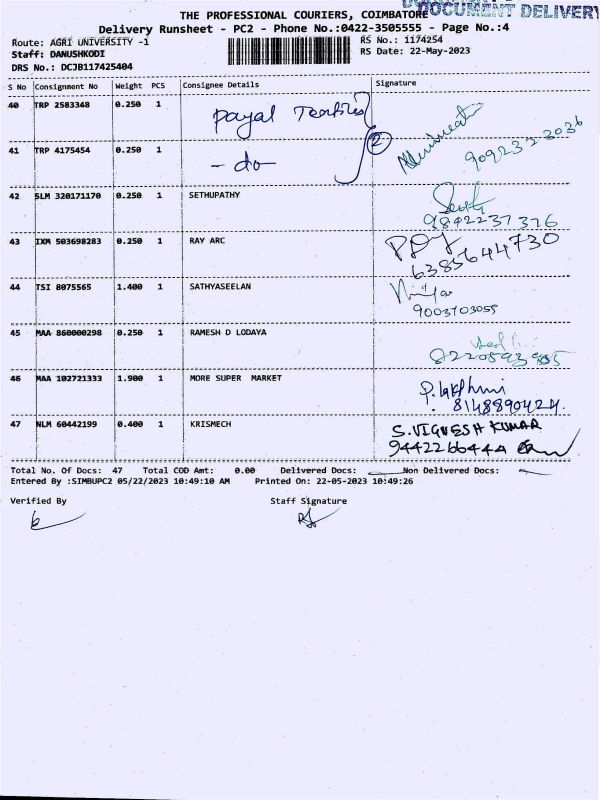 THE PROFESSIONAL COURIERS, COIMBATORE
DOCUMENT DELIVERY
Delivery Runsheet - PC2 - Phone No.:0422-3505555 - Page No.:4
Route: AGRI UNIVERSITY -1
RS No.: 1174254
Staff: DANUSHKODI
RS Date: 22-May-2023
DRS No.: DCJB117425404
S No Consignment No Weight PCS Consignee Details Signature
40 TRP 2583348 0.250 1 Payal
41 TRP 4175454 0.250 1 - do - 2
42 SLM 320171170 0.250 1 SETHUPATHY
9842237376
43 IXM 503698283 0.250 1 RAY ARC
6385644730
44 TSI 8075565 1.400 1 SATHYASEELAN
9003703055
45 MAA 860000298 0.250 1 RAMESH D LODAYA
46 MAA 102721333 1.900 1 MORE SUPER MARKET P. lakhmi
8148890424.
47 NLM 60442199 0.400 1 KRISMECH S. VIGNESH KUMAR
9442266444
Total No. Of Docs: 47 Total COD Amt: 0.00 Delivered Docs: Non Delivered Docs:
Entered By :SIMBUPC2 05/22/2023 10:49:10 AM Printed On: 22-05-2023 10:49:26
Verified By Staff Signature